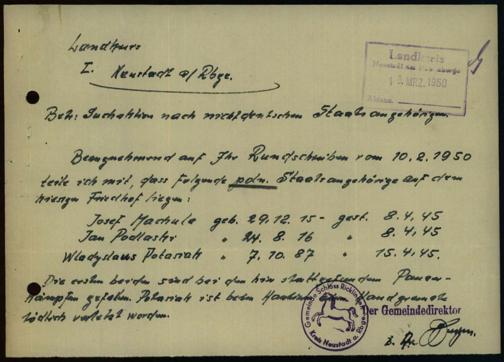 Landkreis
Landkreis
Neustadt am Rübenberge
1 3. MRZ. 1950
I. Neustadt a/Rbge.
Betr: Suchaktion nach nichtdeutschen Staatsangehörigen.
Bezugnehmend auf Ihr Rundschreiben vom 10.2.1950
teile ich mit, dass folgende poln. Staatsangehörige auf dem
hiesigen Friedhof liegen:
Josef Machule geb. 29.12.15 - gest. 8.4.45
Jan Podlaski " 24.8.16 " 8.4.45
Wladyslaus Potarak " 7.10.87 " 15.4.45.
Die ersten beiden sind bei den hier stattgefundenen Panzer-
kämpfen gefallen. Potarak ist beim Handgranate
tödlich verletzt worden.
Gemeinde Schloss Ricklingen
Kreis Neustadt a. Rbge.
Der Gemeindedirektor